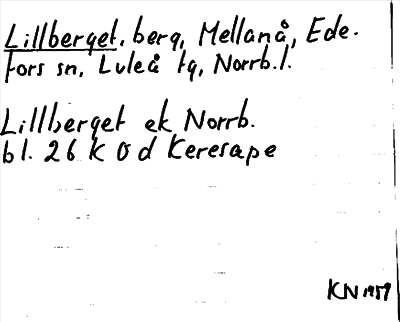 Lillberget, berg, Mellanå, Ede-
fors sn, Luleå tg, Norrb.l.
Lillberget ek Norrb.
bl. 26 k Ö d Keresape
KN 1959